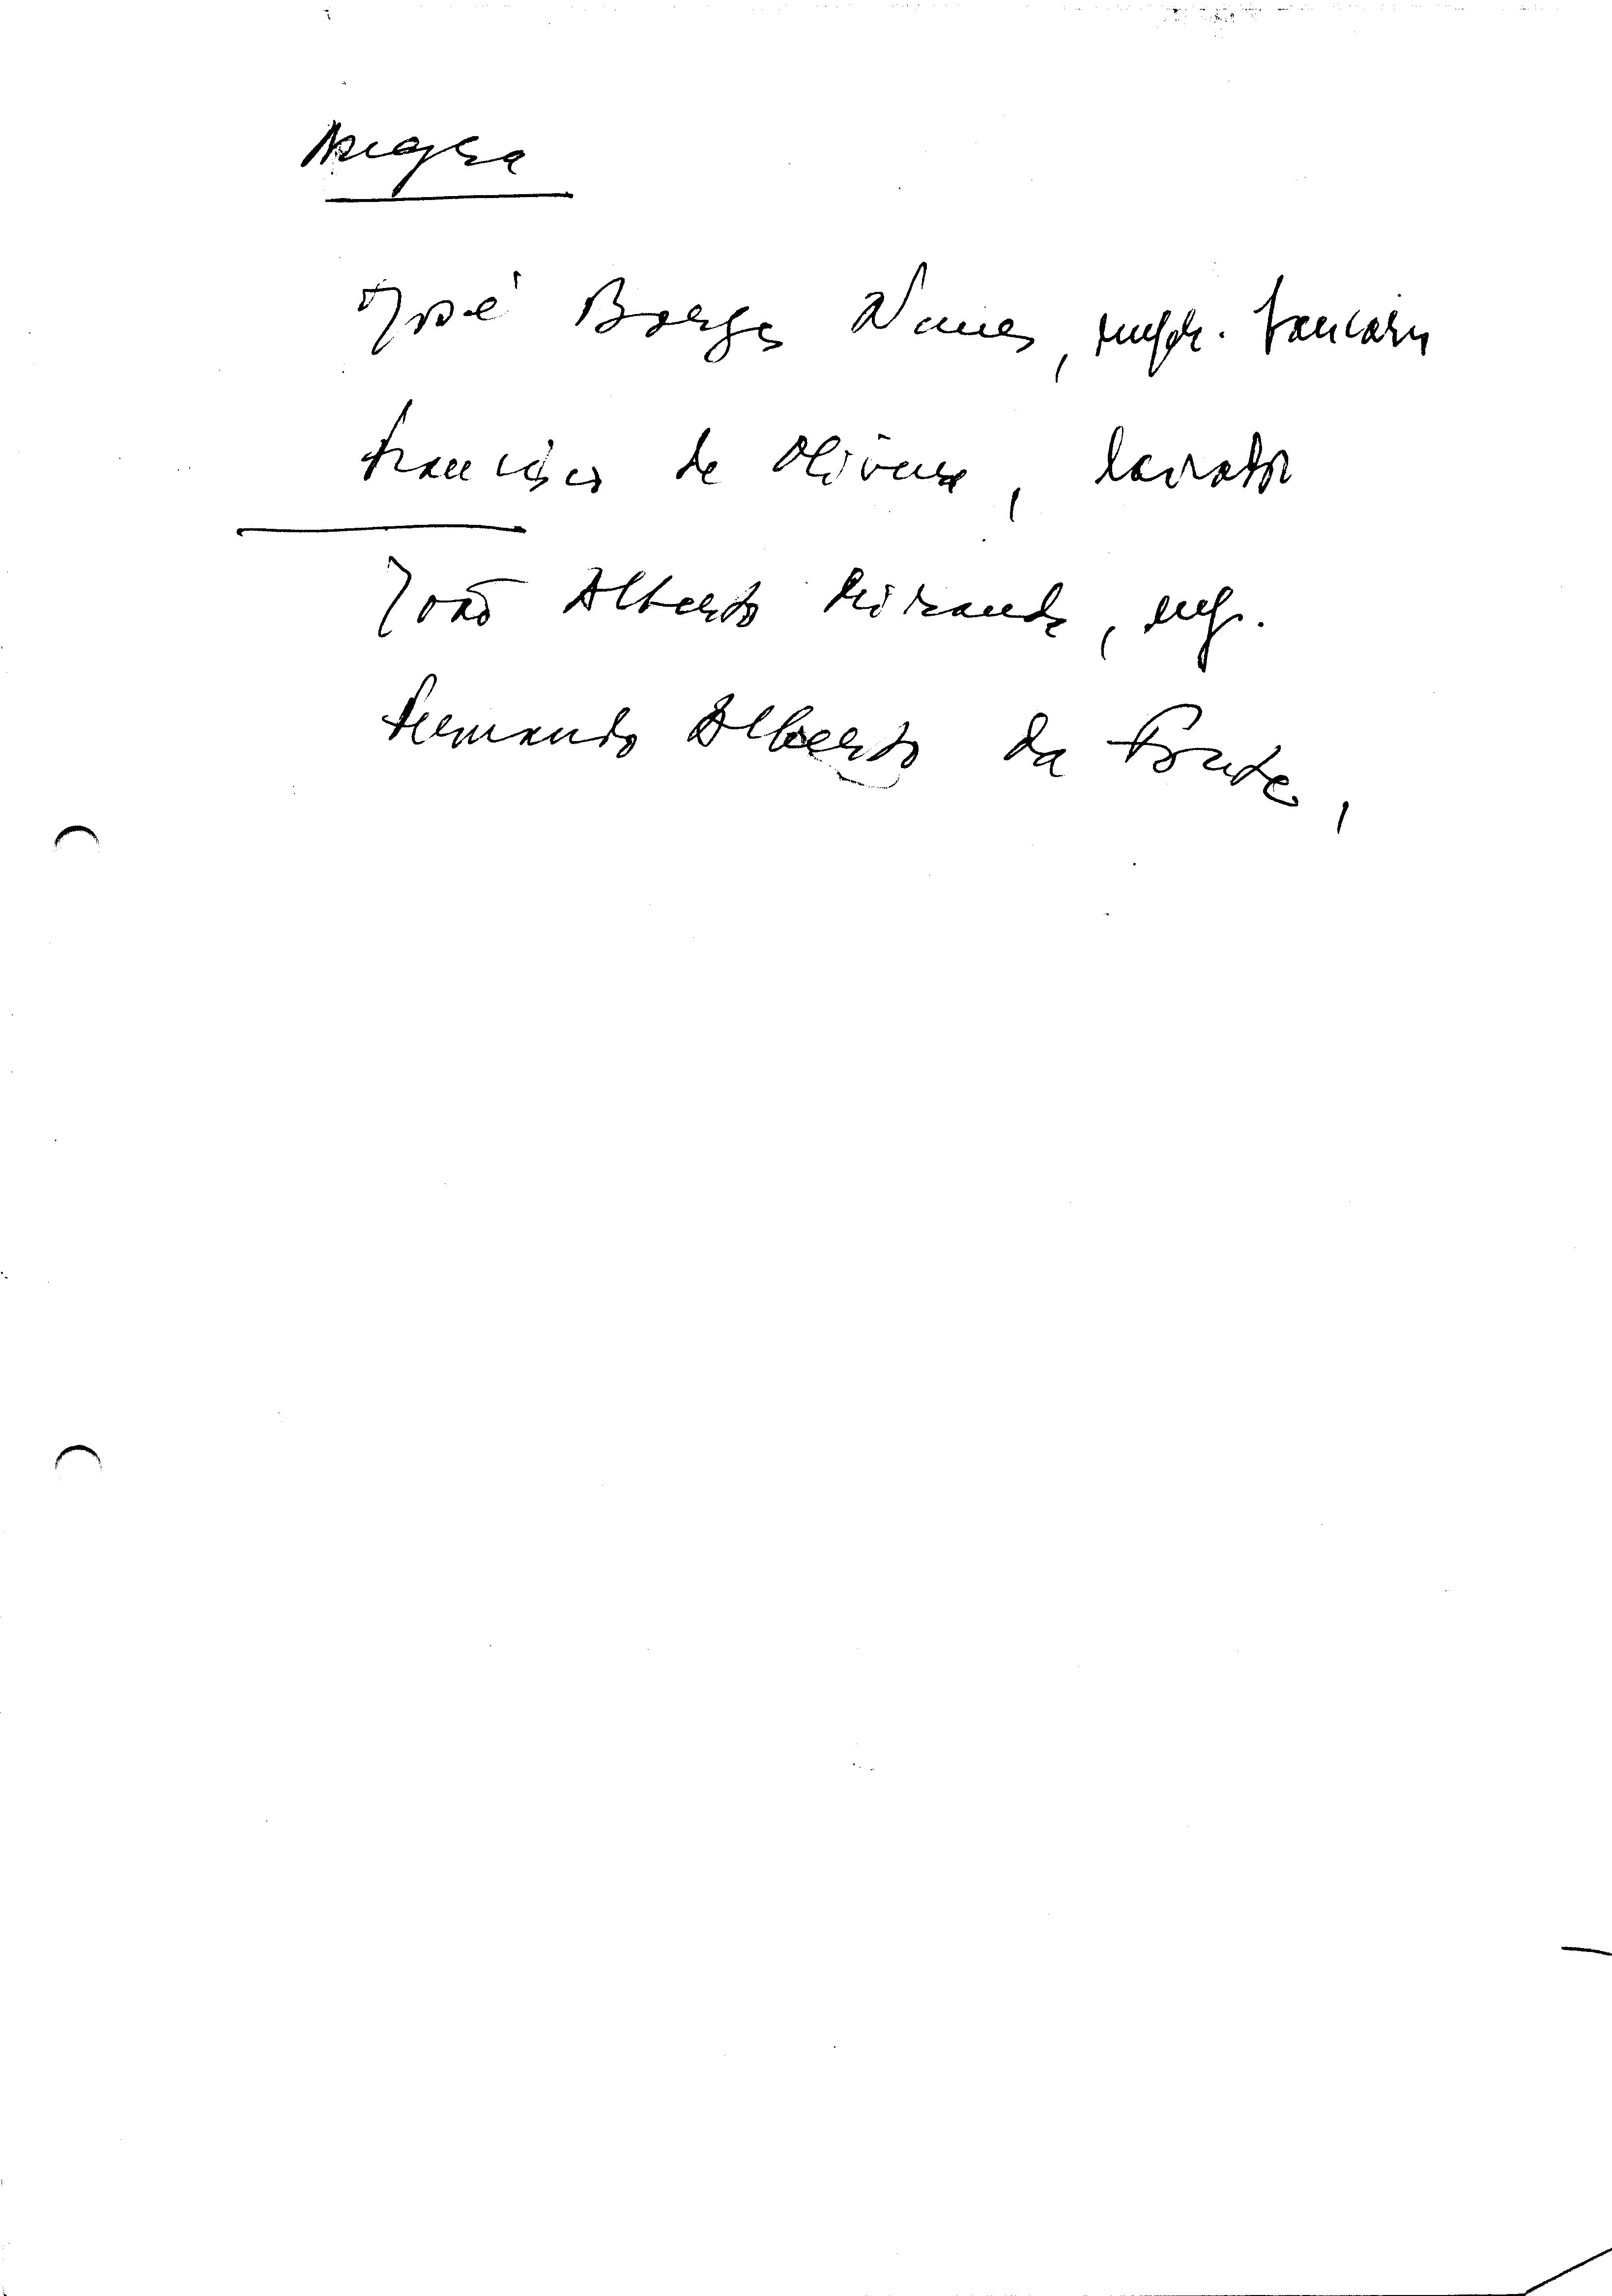 José Borges Nunes, empr. bancário
Francisco de Oliveira, lavrador
João Alberto Miranda, eng.
Fernando Alberto da Ponte,